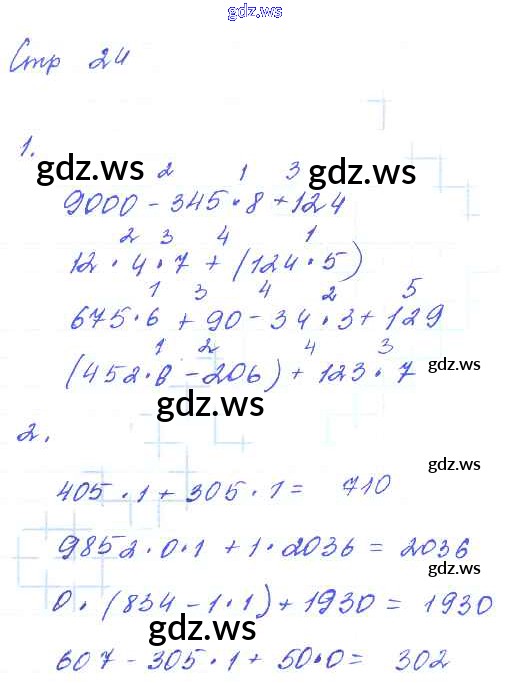 gdz.ws
Стр 24
1.
gdz.ws gdz.ws
2 1 3
9000 - 345 · 8 + 124
2 3 4 1
12 · 4 · 7 + (124 · 5)
1 3 4 2 5
675 · 6 + 90 - 34 · 3 + 129
1 2 4 3
(452 · 8 - 206) + 123 · 7
gdz.ws
gdz.ws
2.
gdz.ws
405 · 1 + 305 · 1 = 710
9852 · 0 · 1 + 1 · 2036 = 2036
gdz.ws
0 · (834 - 1 · 1) + 1930 = 1930
gdz.ws
607 - 305 · 1 + 50 · 0 = 302
gdz.ws